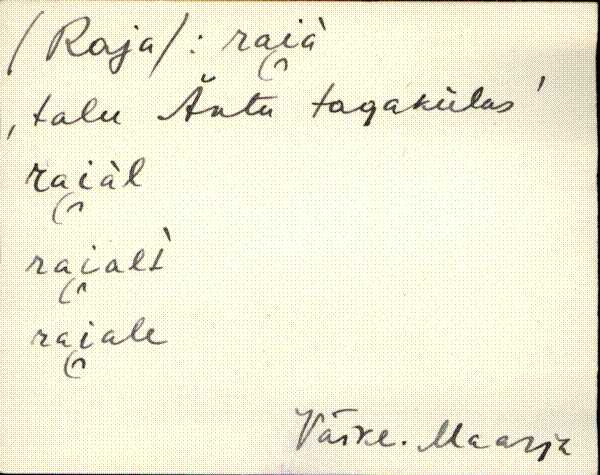 /Raja/: rai̯à
‚talu Äntu tagakülas’
rai̯àl
rai̯alt̀
rai̯ale
Väike-Maarja